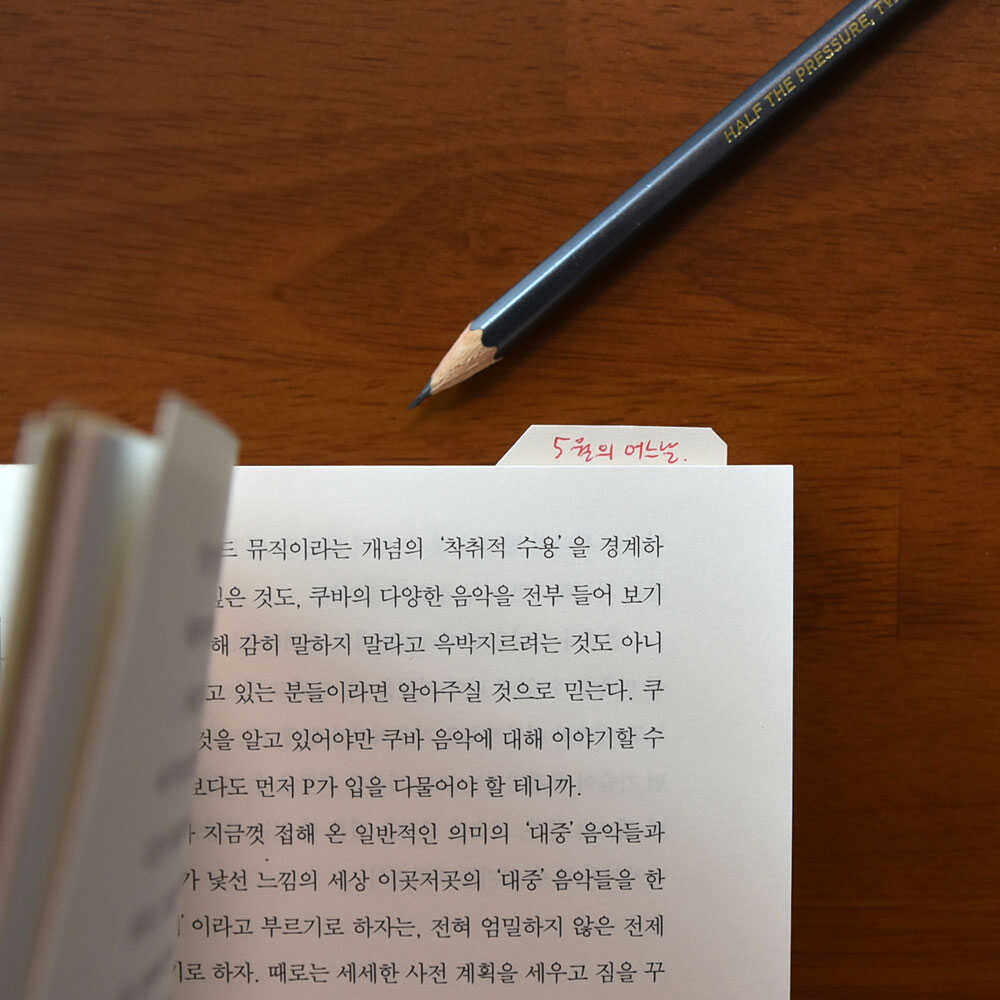 HALF THE PRESSURE,
5월의 어느날.
뮤직이라는 개념의 ‘착취적 수용’을 경계하
것도, 쿠바의 다양한 음악을 전부 들어 보기
감히 말하지 말라고 윽박지르려는 것도 아니
있는 분들이라면 알아주실 것으로 믿는다. 쿠
것을 알고 있어야만 쿠바 음악에 대해 이야기할 수
보다도 먼저 P가 입을 다물어야 할 테니까.
지금껏 접해 온 일반적인 의미의 ‘대중’ 음악들과
낯선 느낌의 세상 이곳저곳의 ‘대중’ 음악들을 한
이라고 부르기로 하자는, 전혀 엄밀하지 않은 전제
하자. 때로는 세세한 사전 계획을 세우고 짐을 꾸